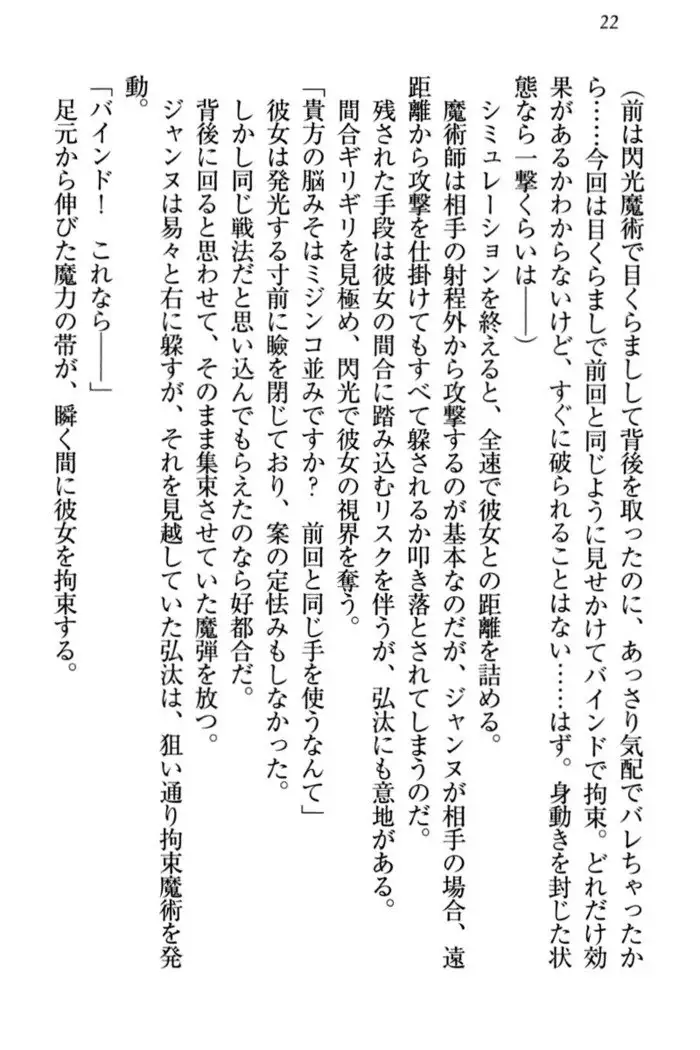 22
（前は閃光魔術で目くらまし​して背後を取ったのに、あっさり気配でバレちゃったか
ら……今回は目くらましで前回と同じように見せかけてバインドで拘束。どれだけ効
果があるかわからないけど、すぐに破られることはない……はず。身動きを封じた状
態なら一撃くらいは――）
シミュレーションを終えると、全速で彼女との距離を詰める。
魔術師は相手の射程外から攻撃するのが基本なのだが、ジャンヌが相手の場合、遠
距離から攻撃を仕掛けてもすべて躱されるか叩き落とされてしまうのだ。
残された手段は彼女の間合に踏み込むリスクを伴うが、弘汰にも意地がある。
間合ギリギリを見極め、閃光で彼女の視界を奪う。
「貴方の脳みそはミジンコ並みですか？　前回と同じ手を使うなんて」
彼女は発光する寸前に瞼を閉じており、案の定怯みもしなかった。
しかし同じ戦法だと思い込んでもらえたのなら好都合だ。
背後に回ると思わせて、そのまま集束させていた魔弾を放つ。
ジャンヌは易々と右に躱すが、それを見越していた弘汰は、狙い通り拘束魔術を発
動。
「バインド！　これなら――」
足元から伸びた魔力の帯が、瞬く間に彼女を拘束する。